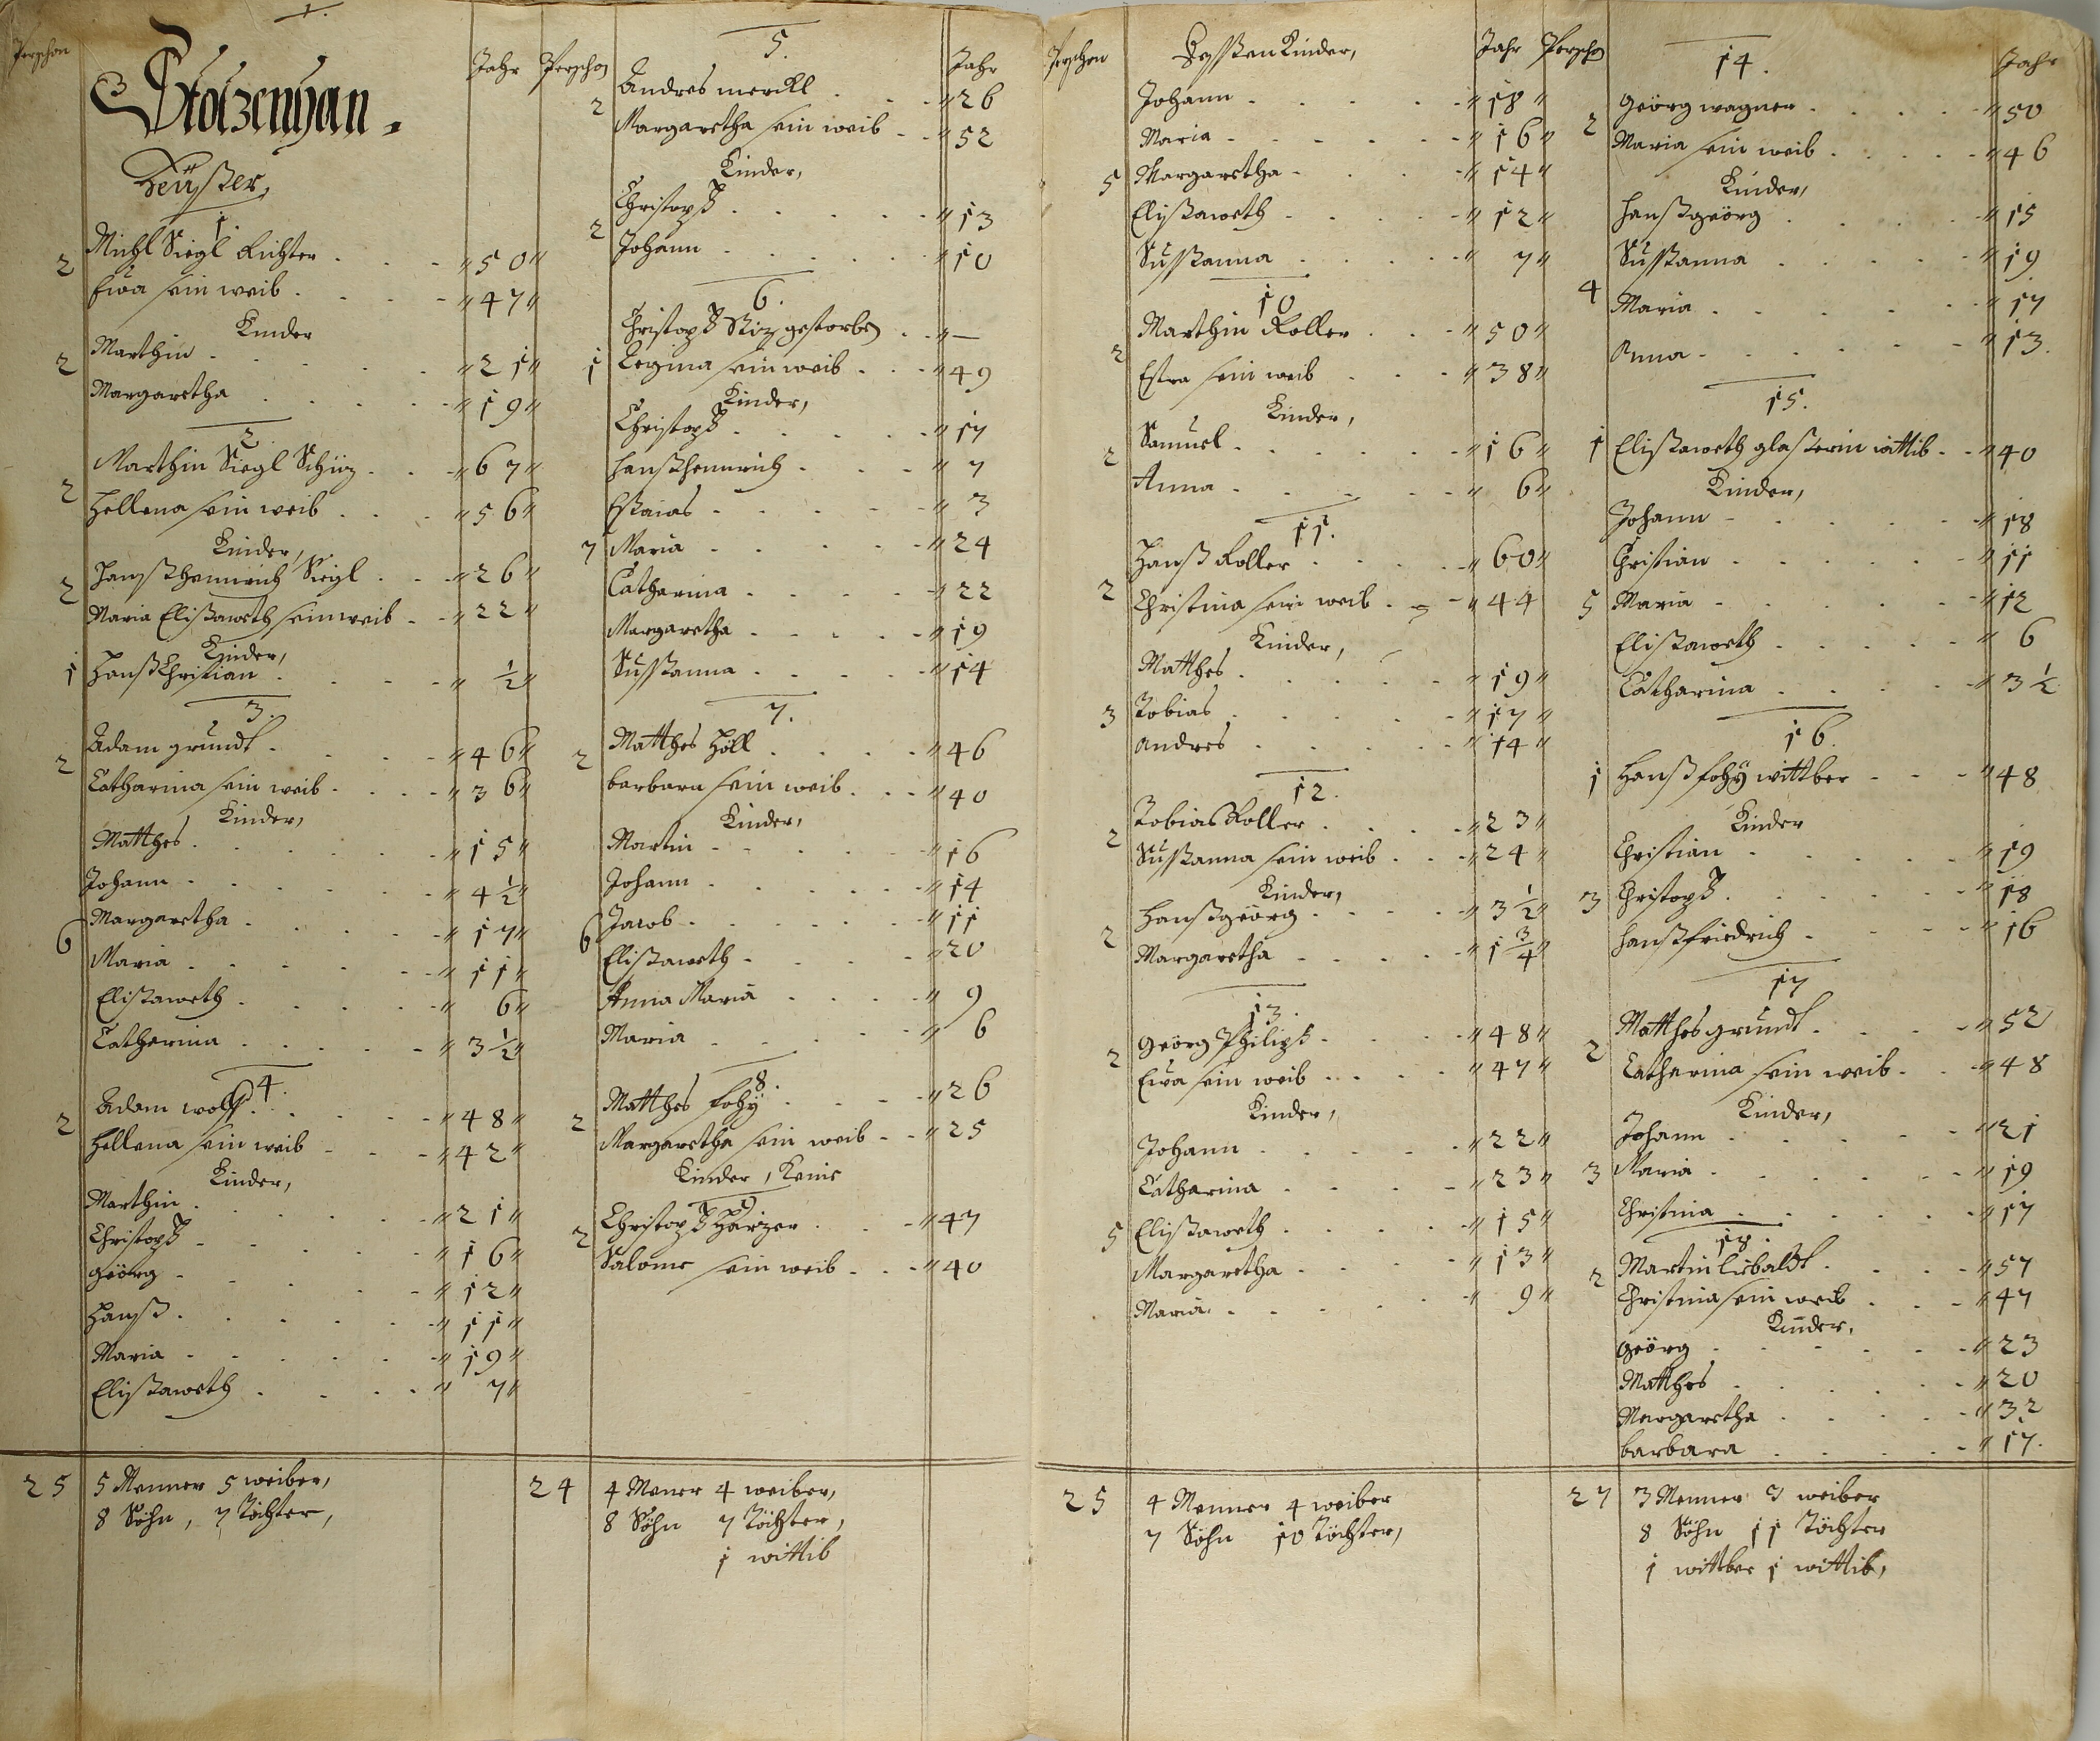 1.
Perschon
Jahr
Stolzenhan.
Heüßer,
1
2 Michl Siegl Richter . . . " 50 "
Eva sein weib . . . " 47 "
Kinder
2 Marthin . . . " 21 "
Margaretha . . . " 19 "
2.
2 Marthin Siegl Schüz . . . " 67 "
Hellena sein weib . . . " 56 "
Kinder,
2 Hanßheinrich Siegl . . . " 26 "
Maria Elißaweth sein weib . . " 22 "
Kinder,
1 Hanß Christian . . . " ½ "
3.
2 Adam grundt . . . " 46 "
Catharina sein weib . . . " 36 "
Kinder,
Matthes . . . " 15 "
Johann . . . " 4½ "
Margaretha . . . " 17 "
6 Maria . . . " 11 "
Elißaweth . . . " 6 "
Catherina . . . " 3½ "
4.
2 Adam wolff . . . " 48 "
Hellena sein weib . . . " 42 "
Kinder,
Marthin . . . " 21 "
Christoph . . . " 16 "
Geörg . . . " 12 "
Hanß . . . " 11 "
Maria . . . " 19 "
Elißaweth . . . " 7 "
25 5 Menner 5 weiber,
8 Söhn, 7 Töchter,
Perschon
Jahr
5.
2 Andres merckl . . . " 26
Margaretha sein weib . . " 52
Kinder,
Christoph . . . " 13
2 Johann . . . " 10
6.
Christoph Stiz gestorben . . " —
1 Regina sein weib . . . " 49
Kinder,
Christoph . . . " 17
Hanßheinrich . . . " 7
Esaias . . . " 3
7 Maria . . . " 24
Catharina . . . " 22
Margaretha . . . " 19
Sußanna . . . " 14
7.
2 Matthes Höll . . . " 46
barbara sein weib . . . " 40
Kinder,
Martin . . . " 16
Johann . . . " 14
Jacob . . . " 11
6 Elißaweth . . . " 20
Anna Maria . . . " 9
Maria . . . " 6
8.
2 Matthes fohÿ . . . " 26
Margaretha sein weib . . " 25
Kinder, Keine
9
2 Christoph Harzer . . . " 47
Salome sein weib . . . " 40
24 4 Mener 4 weiber,
8 Söhn 7 Töchter,
1 wittib
Perschon
Deßen Kinder,
Jahr
Johann . . . " 18 "
Maria . . . " 16 "
5 Margaretha . . . " 14 "
Elißaweth . . . " 12 "
Sußanna . . . " 7 "
10
2 Marthin Roller . . . " 50 "
Estra sein weib . . . " 38 "
Kinder,
2 Samuel . . . " 16 "
Anna . . . " 6 "
11.
2 Hanß Roller . . . " 60 "
Christina sein weib . . " 44
Kinder,
Matthes . . . " 19 "
3 Tobias . . . " 17 "
Andres . . . " 14 "
12.
2 Tobias Roller . . . " 23 "
Sußanna sein weib . . . " 24 "
Kinder,
2 Hanßgeörg . . . " 3½ "
Margaretha . . . " 1¾ "
13.
2 Geörg Philipß . . . " 48 "
Ewa sein weib . . . " 47 "
Kinder,
Johann . . . " 22 "
Catharina . . . " 23 "
5 Elißaweth . . . " 15 "
Margaretha . . . " 13 "
Maria . . . " 9 "
25 4 Menner 4 weiber
7 Söhn 10 Töchter,
Perschon
Jahr
14.
2 Geörg wagner . . . " 50
Maria sein weib . . . " 46
Kinder,
Hanßgeörg . . . " 15
Sußanna . . . " 19
4 Maria . . . " 17
Anna . . . " 13.
15.
1 Elißaweth glaßerin wittib . . " 40
Kinder,
Johann . . . " 18
Christian . . . " 11
5 Maria . . . " 12
Elißaweth . . . " 6
Catharina . . . " 3½
16.
1 Hanß fohÿ wittber . . . " 48
Kinder
Christian . . . " 19
3 Christoph . . . " 18
Hanßfriedrich . . . " 16
17
2 Matthes grundt . . . " 52
Catharina sein weib . . . " 48
Kinder,
Johann . . . " 21
3 Maria . . . " 19
Christina . . . " 17
18.
2 Martin liebaldt . . . " 57
Christina sein weib . . . " 47
Kinder,
Geörg . . . " 23
Matthes . . . " 20
Margaretha . . . " 32
barbara . . . " 17.
27 3 Menner 3 weiber
8 Söhn 11 Töchter
1 wittber 1 wittib,